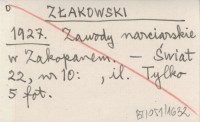 ZŁAKOWSKI
1927. Zawody narciarskie
w Zakopanem. — Świat
22, nr 10: , il. Tylko
5 fot.